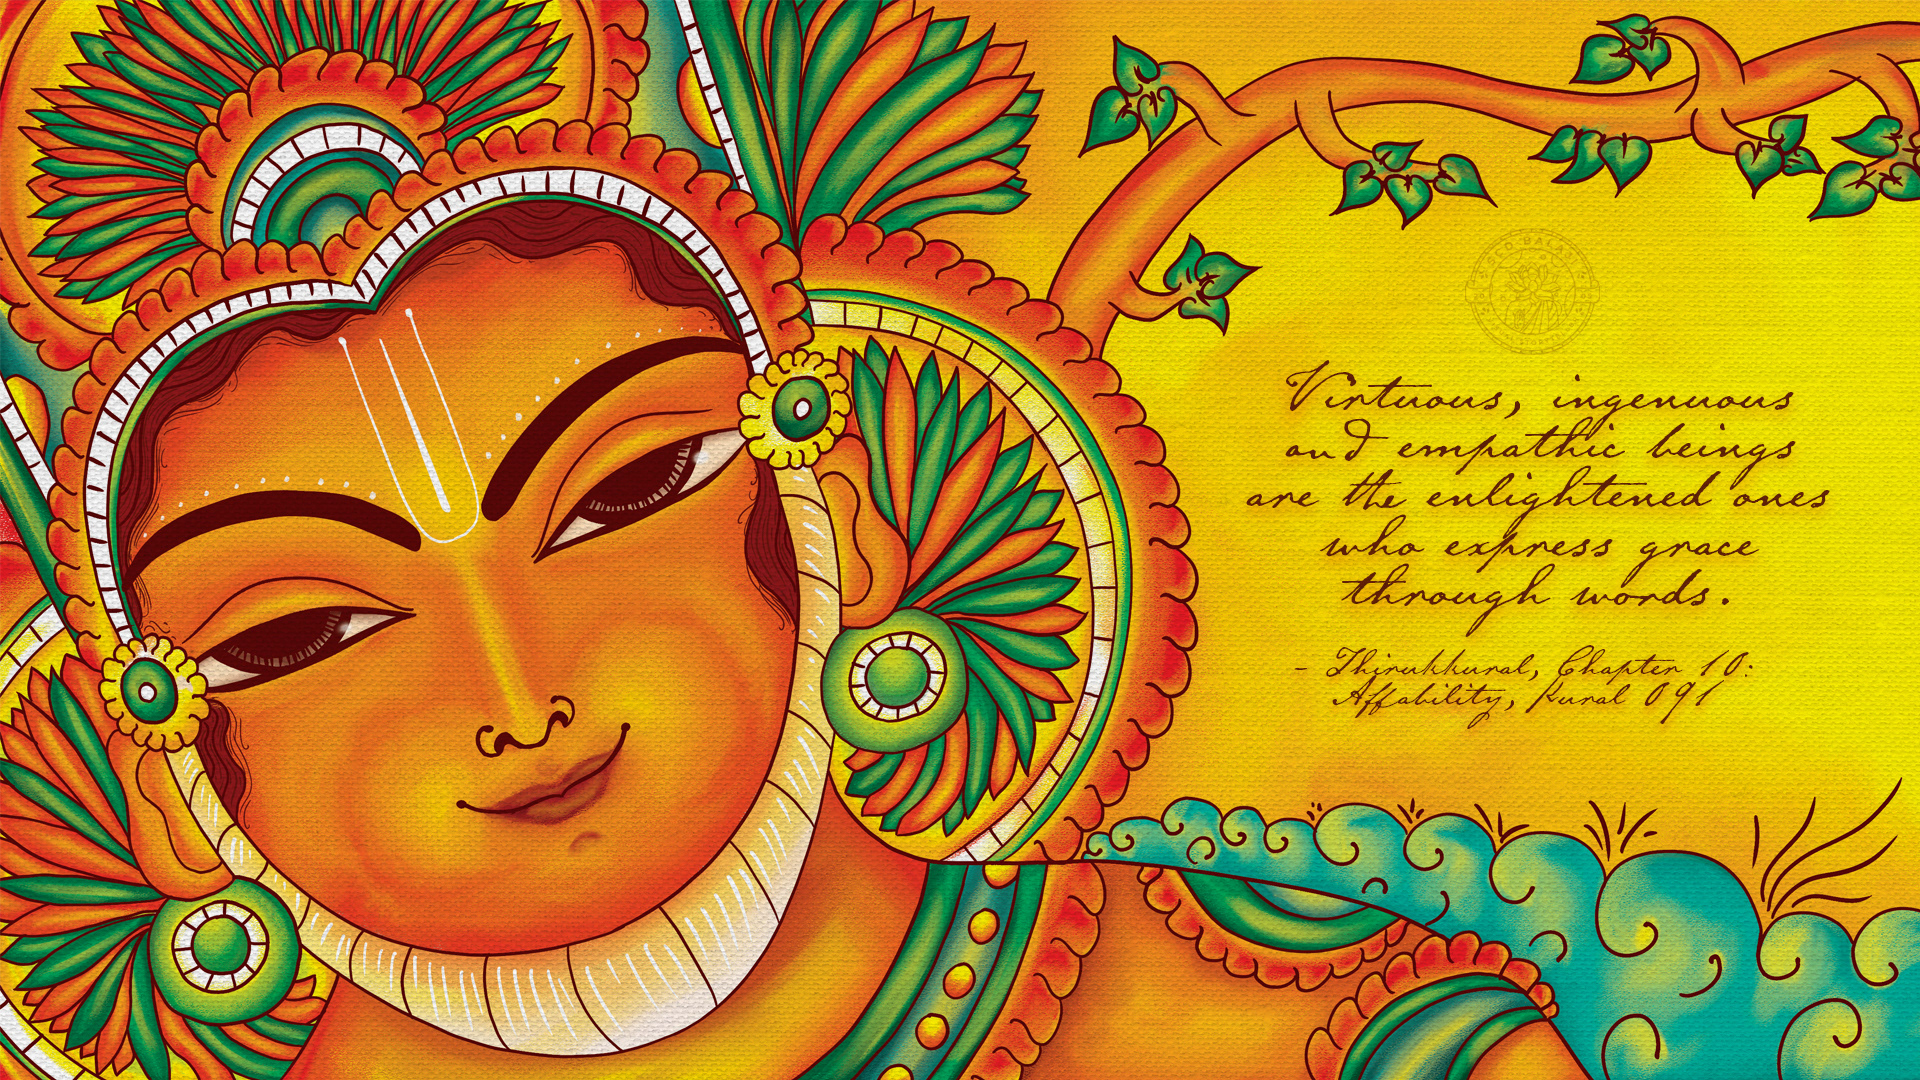 Virtuous, ingenuous
and empathic beings
are the enlightened ones
who express grace
through words.
- Thirukkural, Chapter 10:
Affability, Kural 091